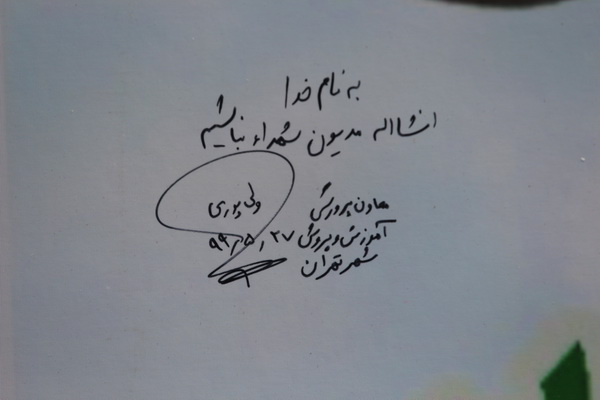 به نام خدا
انشااله مدیون شهداء نباشیم
معاون پرورشی ولی پوری
آموزش و پرورش ۹۹/۵/۲۷
شهر تهران